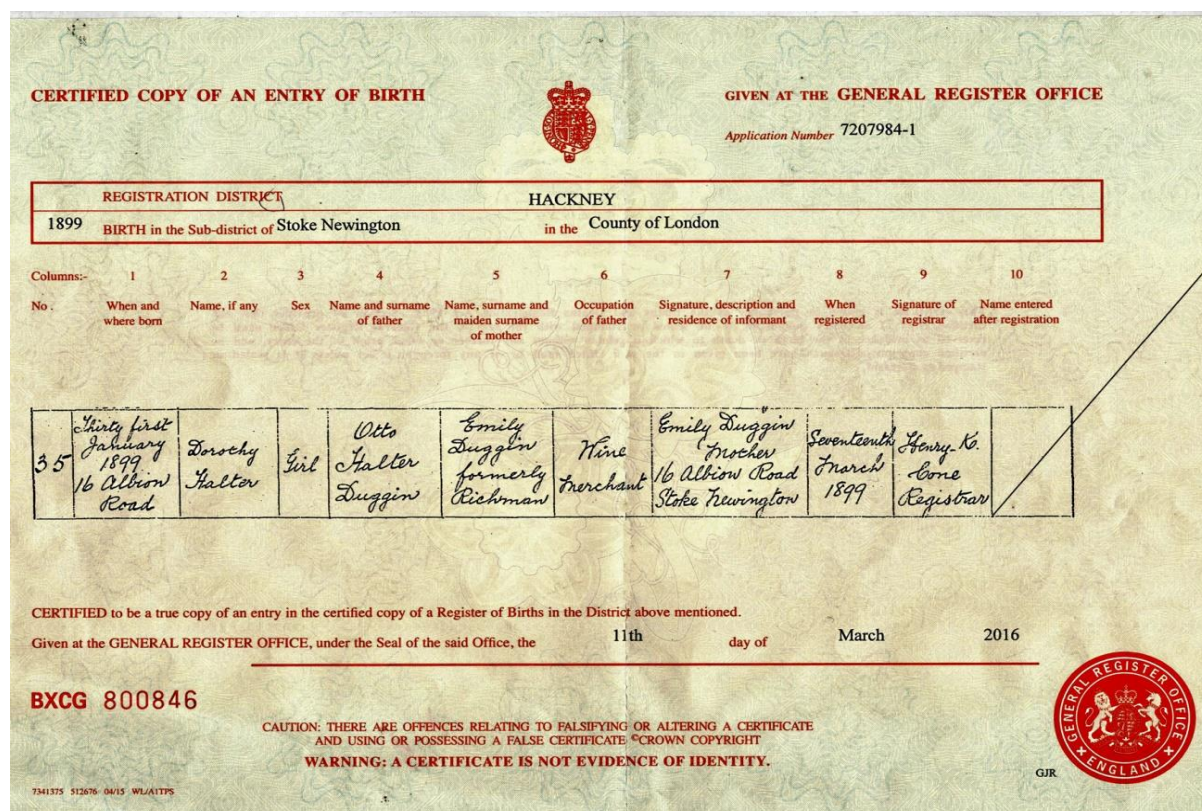 CERTIFIED COPY OF AN ENTRY OF BIRTH
GIVEN AT THE GENERAL REGISTER OFFICE
Application Number 7207984-1
REGISTRATION DISTRICT HACKNEY
1899 BIRTH in the Sub-district of Stoke Newington in the County of London
Columns:- 1 2 3 4 5 6 7 8 9 10
No. When and where born Name, if any Sex Name and surname of father Name, surname and maiden surname of mother Occupation of father Signature, description and residence of informant When registered Signature of registrar Name entered after registration
35
Thirty first
January
1899
16 Albion
Road
Dorothy
Halter
Girl
Otto
Halter
Duggin
Emily
Duggin
formerly
Richman
Wine
Merchant
Emily Duggin
Mother
16 Albion Road
Stoke Newington
Seventeenth
March
1899
Henry K.
Cone
Registrar
CERTIFIED to be a true copy of an entry in the certified copy of a Register of Births in the District above mentioned.
Given at the GENERAL REGISTER OFFICE, under the Seal of the said Office, the 11th day of March 2016
BXCG 800846
CAUTION: THERE ARE OFFENCES RELATING TO FALSIFYING OR ALTERING A CERTIFICATE
AND USING OR POSSESSING A FALSE CERTIFICATE ©CROWN COPYRIGHT
WARNING: A CERTIFICATE IS NOT EVIDENCE OF IDENTITY.
GENERAL REGISTER OFFICE
ENGLAND
GJR
7341375 512676 04/15 WL/A1TPS